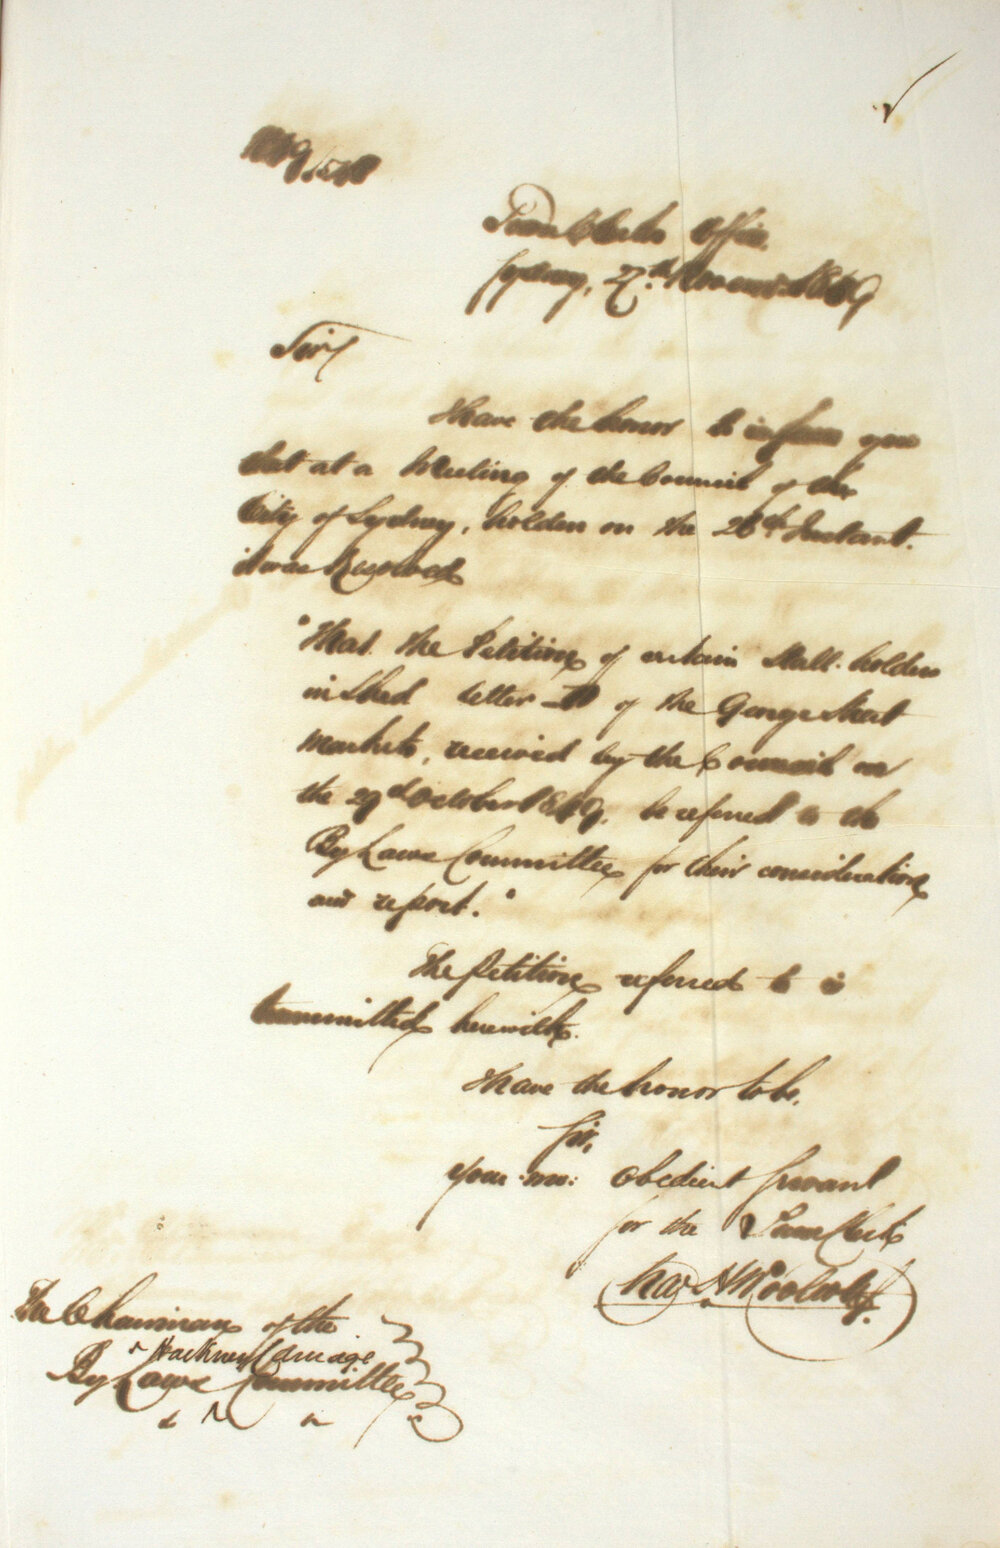 Town Clerks Office
Sydney, 27th November 1849
Sir
I have the honor to inform you
that at a Meeting of the Council of the
City of Sydney, holden on the 26th Instant.
it was Resolved
"That the Petition of certain Stall-holders
in Shed letter of the George Street
Markets, received by the Council on
the 29th October 1849, be referred to the
By Laws Committee for their consideration
and report."
The Petition referred to is
transmitted herewith.
I have the honor to be,
Sir,
Your mo: Obedient Servant
for the Town Clerk
Chas H Woolcott
The Chairman of the
Hackney Carriage
By Laws Committee